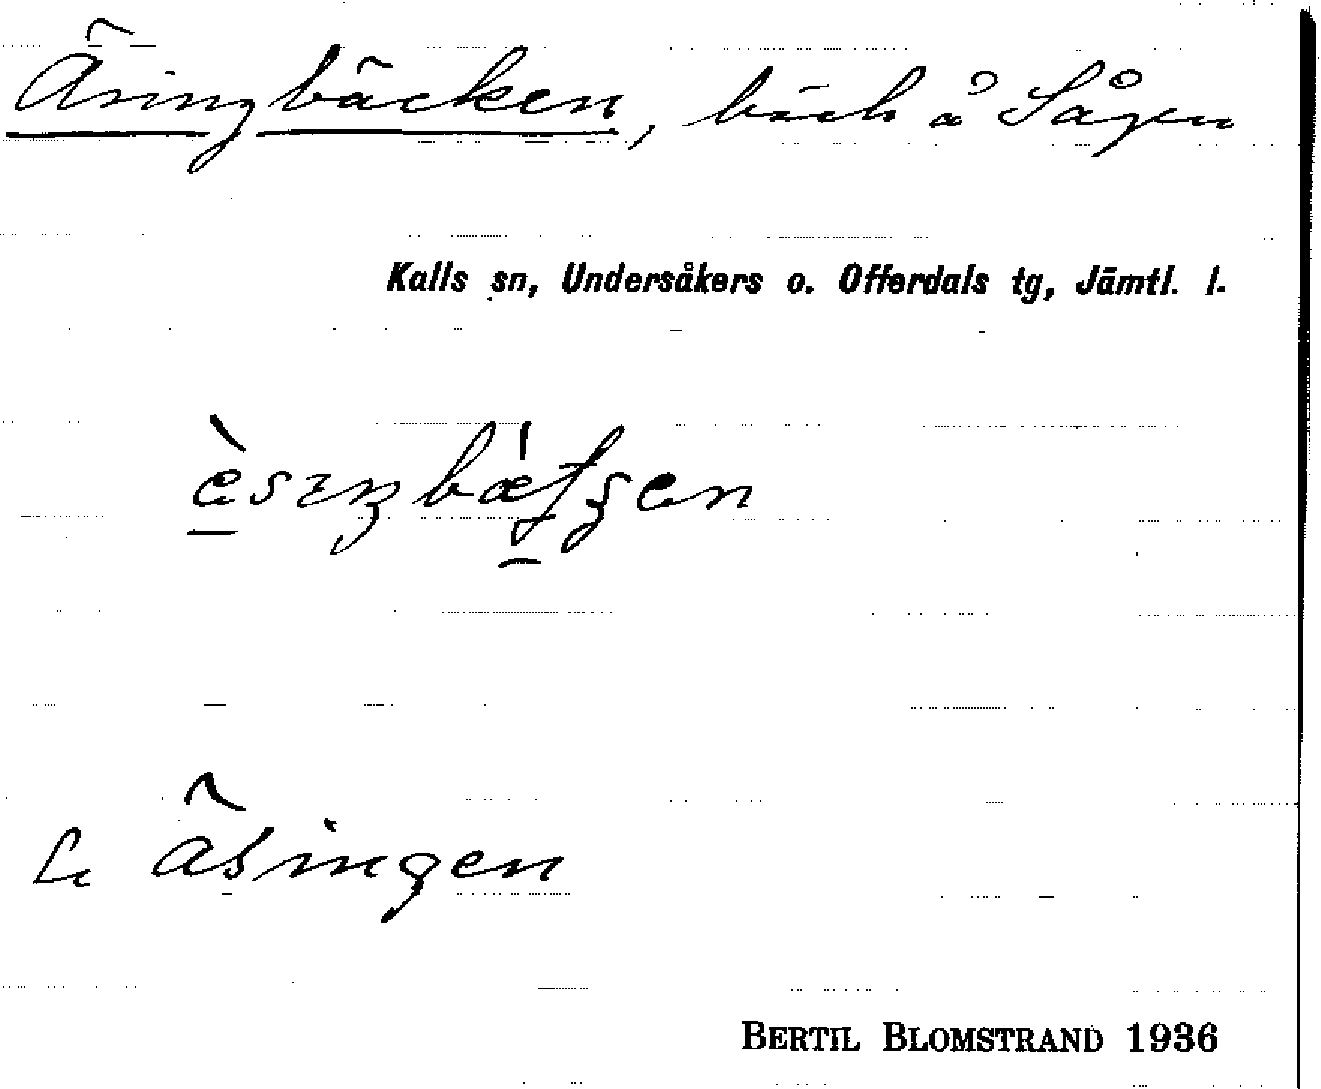 Äsingbäcken, bäck å Sågen
Kalls sn, Undersåkers o. Offerdals tg, Jämtl. l.
Se Äsingen
BERTIL BLOMSTRAND 1936